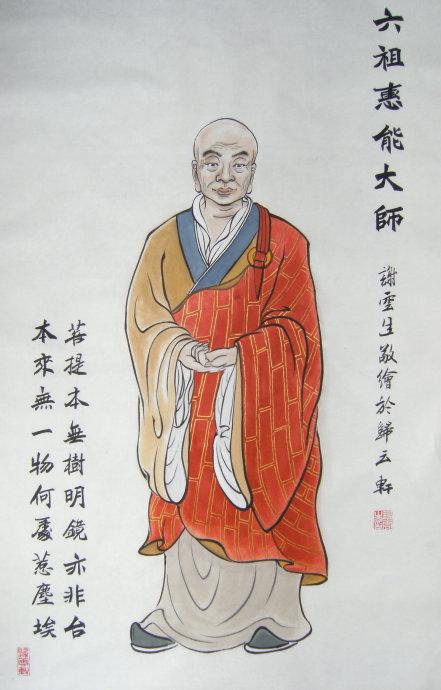 六祖惠能大師
謝雲生敬繪於歸云軒
菩提本無樹明鏡亦非台
本來無一物何處惹塵埃